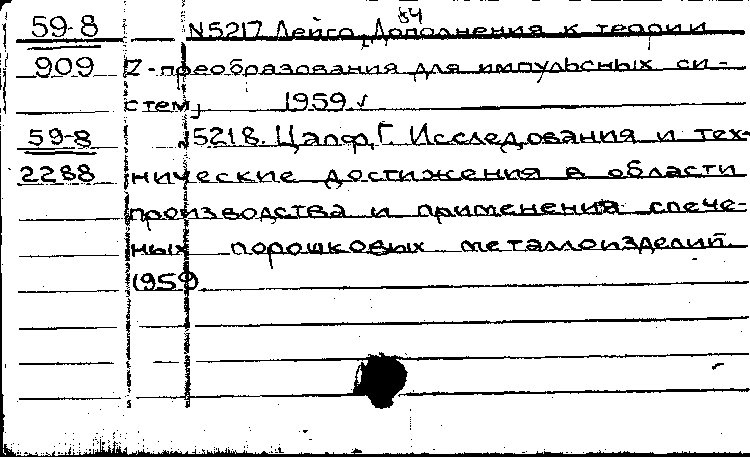 59-8 N5217 Лейго, Дополнения к теории
909 Z-преобразования для импульсных си-
стем, 1959
59-8 5218. Цапф, Г. Исследования и тех-
2288 нические достижения в области
производства и применения спече-
ных порошковых металлоизделий
1959